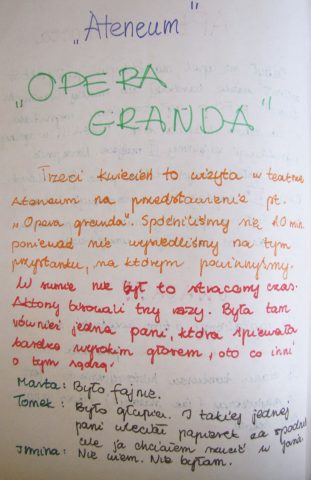 „Ateneum"
„OPERA
GRANDA"
Trzeci kwiecień to wizyta w teatrze
Ateneum na przedstawienie pt.
„Opera granda". Spóźniliśmy się 10 min.
ponieważ nie wysiedliśmy na tym
przystanku, na którym powinnyśmy.
W sumie nie był to stracony czas.
Aktorzy bisowali trzy razy. Była tam
również jedna pani, która śpiewała
bardzo wysokim głosem, oto co inni
o tym sądzą:
Marta: Było fajnie.
Tomek: Było głupio. I takiej jednej
pani uleciał papierek za spodni
ale ja chciałem rzucić w
Janina: Nie wiem. Nie byłam.